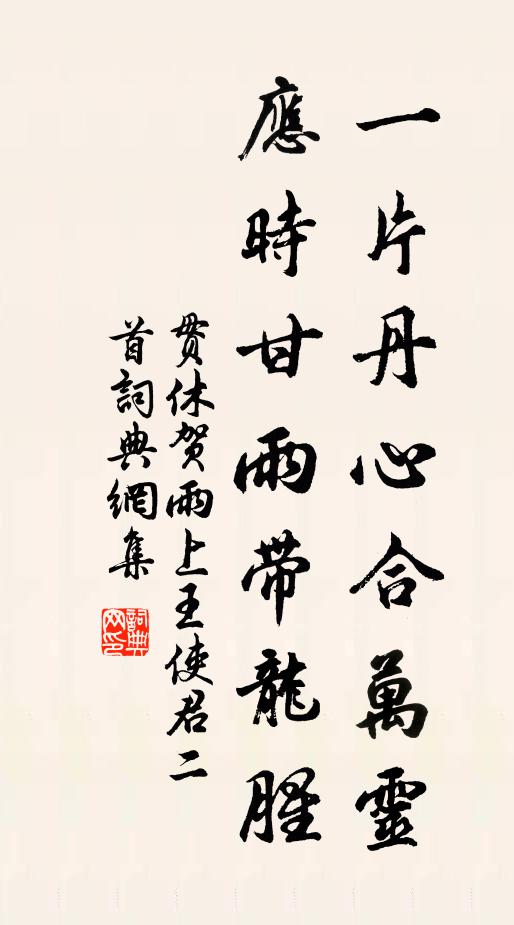 一片丹心合萬靈
應時甘雨帶龍腥
貫休賀雨上王使君二
首詞典網集
詞典
网印